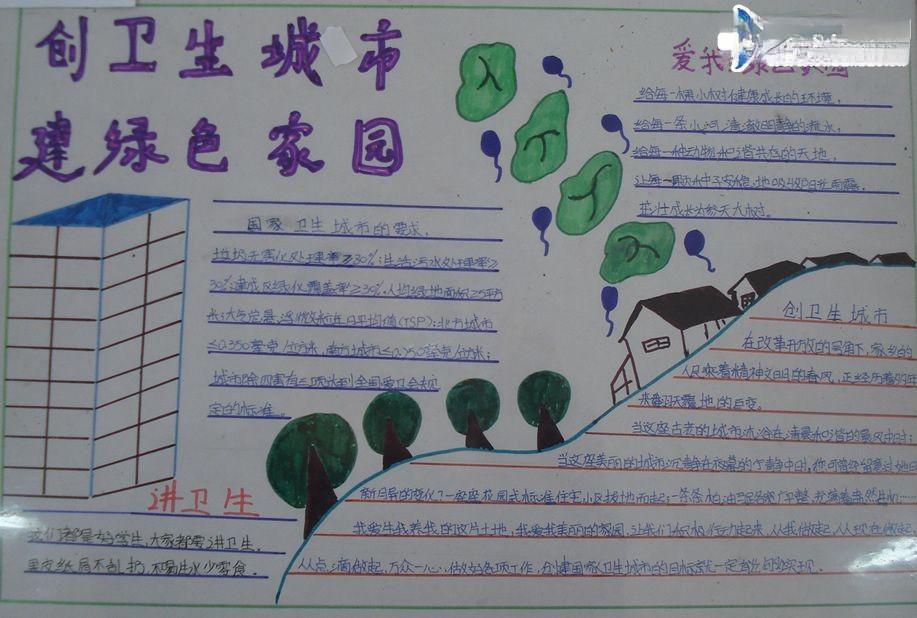 创卫生城市
建绿色家园
爱我绿色家园
给每一棵小树健康成长的环境,
给每一条小河清澈明静的流水,
给每一种动物和谐共存的天地,
让每一颗水中子安稳地吸收阳光雨露,
茁壮成长为参天大树.
国家卫生城市的要求.
垃圾无害化处理率≥30%;生活污水处理率≥
30%;建成区绿化覆盖率≥30%,人均绿地面积≥5平方
米;大气总悬浮微粒年日平均值(TSP):北方城市
≤0.350毫克/立方米,南方城市≤0.250毫克/立方米;
城市除四害有三项达到全国爱卫会规
定的标准。
创卫生城市
在改革开放的号角下,家乡的
人民乘着精神文明的春风,正经历着
来翻天覆地的巨变。
当这座古老的城市沐浴在清晨和谐的晨风中时;
当这座美丽的城市沉静在夜幕的宁静中时,你可曾经留意过她日
新月异的变化?一座座花园式标准住宅小区拔地而起;一条条柏油马路宽广平整,充满着盎然生机……
我爱生我养我的这片土地,我爱我美丽的家园,让我们积极行动起来,从我做起,从现在做起
从点滴做起,万众一心,做好各项工作,创建国家卫生城市的目标就一定会早日实现.
讲卫生
我们都是好学生,大家都要讲卫生。
果皮纸屑不乱扔,不喝生水少零食。